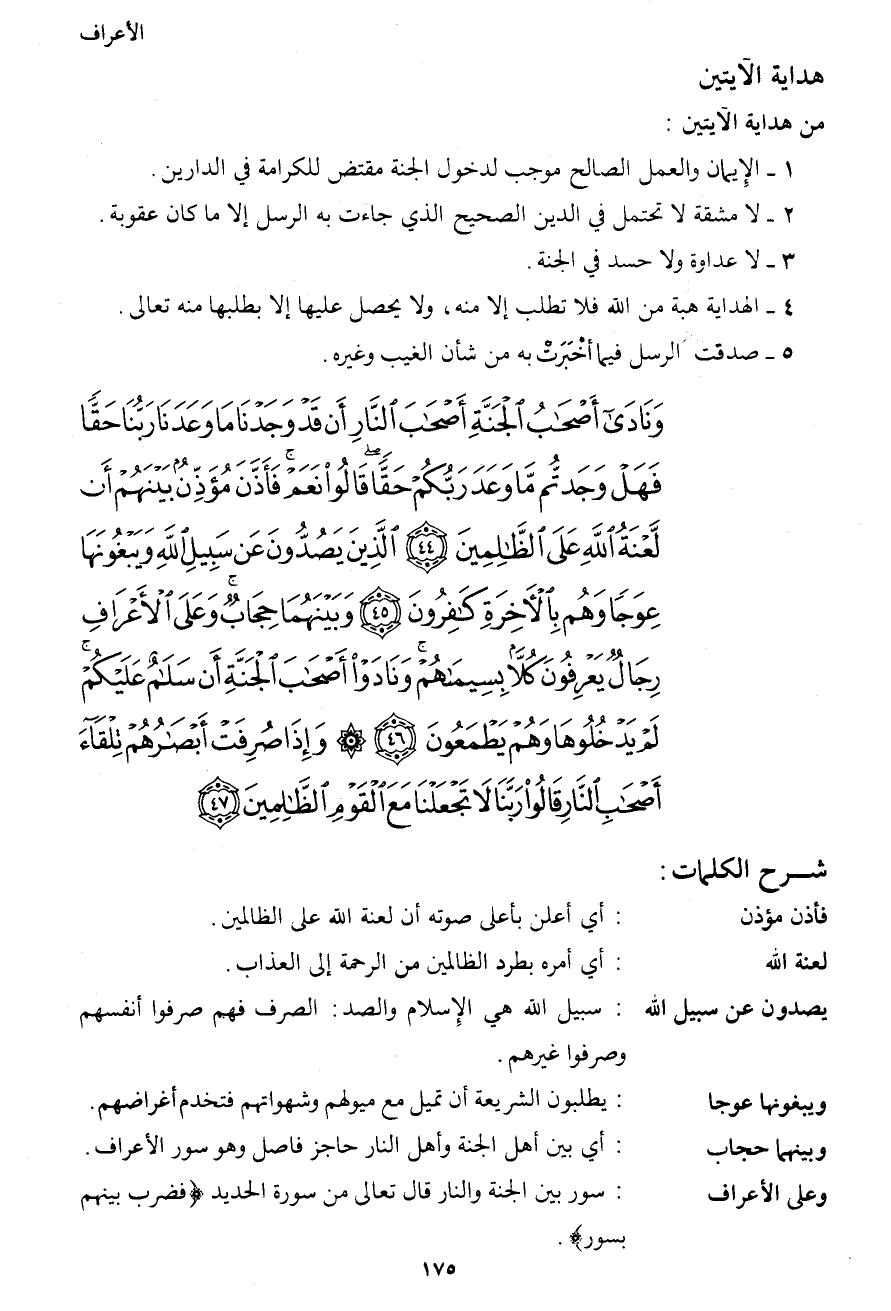 الأعراف
هداية الآيتين
من هداية الآيتين :
١ ـ الإيمان والعمل الصالح موجب لدخول الجنة مقتض للكرامة في الدارين .
٢ ـ لا مشقة لا تحتمل في الدين الصحيح الذي جاءت به الرسل إلا ما كان عقوبة .
٣ ـ لا عداوة ولا حسد في الجنة .
٤ ـ الهداية هبة من الله فلا تطلب إلا منه ، ولا يحصل عليها إلا بطلبها منه تعالى .
٥ ـ صدقت الرسل فيما أخْبَرَتْ به من شأن الغيب وغيره .
وَنَادَىٰٓ أَصْحَٰبُ ٱلْجَنَّةِ أَصْحَٰبَ ٱلنَّارِ أَن قَدْ وَجَدْنَا مَا وَعَدَنَا رَبُّنَا حَقًّا
فَهَلْ وَجَدتُّم مَّا وَعَدَ رَبُّكُمْ حَقًّا ۖ قَالُوا۟ نَعَمْ ۚ فَأَذَّنَ مُؤَذِّنٌۢ بَيْنَهُمْ أَن
لَّعْنَةُ ٱللَّهِ عَلَى ٱلظَّٰلِمِينَ ﴿٤٤﴾ ٱلَّذِينَ يَصُدُّونَ عَن سَبِيلِ ٱللَّهِ وَيَبْغُونَهَا
عِوَجًا وَهُم بِٱلْءَاخِرَةِ كَٰفِرُونَ ﴿٤٥﴾ وَبَيْنَهُمَا حِجَابٌ ۚ وَعَلَى ٱلْأَعْرَافِ
رِجَالٌ يَعْرِفُونَ كُلًّۢا بِسِيمَىٰهُمْ ۚ وَنَادَوْا۟ أَصْحَٰبَ ٱلْجَنَّةِ أَن سَلَٰمٌ عَلَيْكُمْ ۚ
لَمْ يَدْخُلُوهَا وَهُمْ يَطْمَعُونَ ﴿٤٦﴾ ۞ وَإِذَا صُرِفَتْ أَبْصَٰرُهُمْ تِلْقَآءَ
أَصْحَٰبِ ٱلنَّارِ قَالُوا۟ رَبَّنَا لَا تَجْعَلْنَا مَعَ ٱلْقَوْمِ ٱلظَّٰلِمِينَ ﴿٤٧﴾
شـرح الكلمات :
فأذن مؤذن : أي أعلن بأعلى صوته أن لعنة الله على الظالمين .
لعنة الله : أي أمره بطرد الظالمين من الرحمة إلى العذاب .
يصدون عن سبيل الله : سبيل الله هي الإسلام والصد : الصرف فهم صرفوا أنفسهم
وصرفوا غيرهم .
ويبغونها عوجا : يطلبون الشريعة أن تميل مع ميولهم وشهواتهم فتخدم أغراضهم .
وبينهما حجاب : أي بين أهل الجنة وأهل النار حاجز فاصل وهو سور الأعراف .
وعلى الأعراف : سور بين الجنة والنار قال تعالى من سورة الحديد ﴿فضرب بينهم
بسور﴾ .
١٧٥